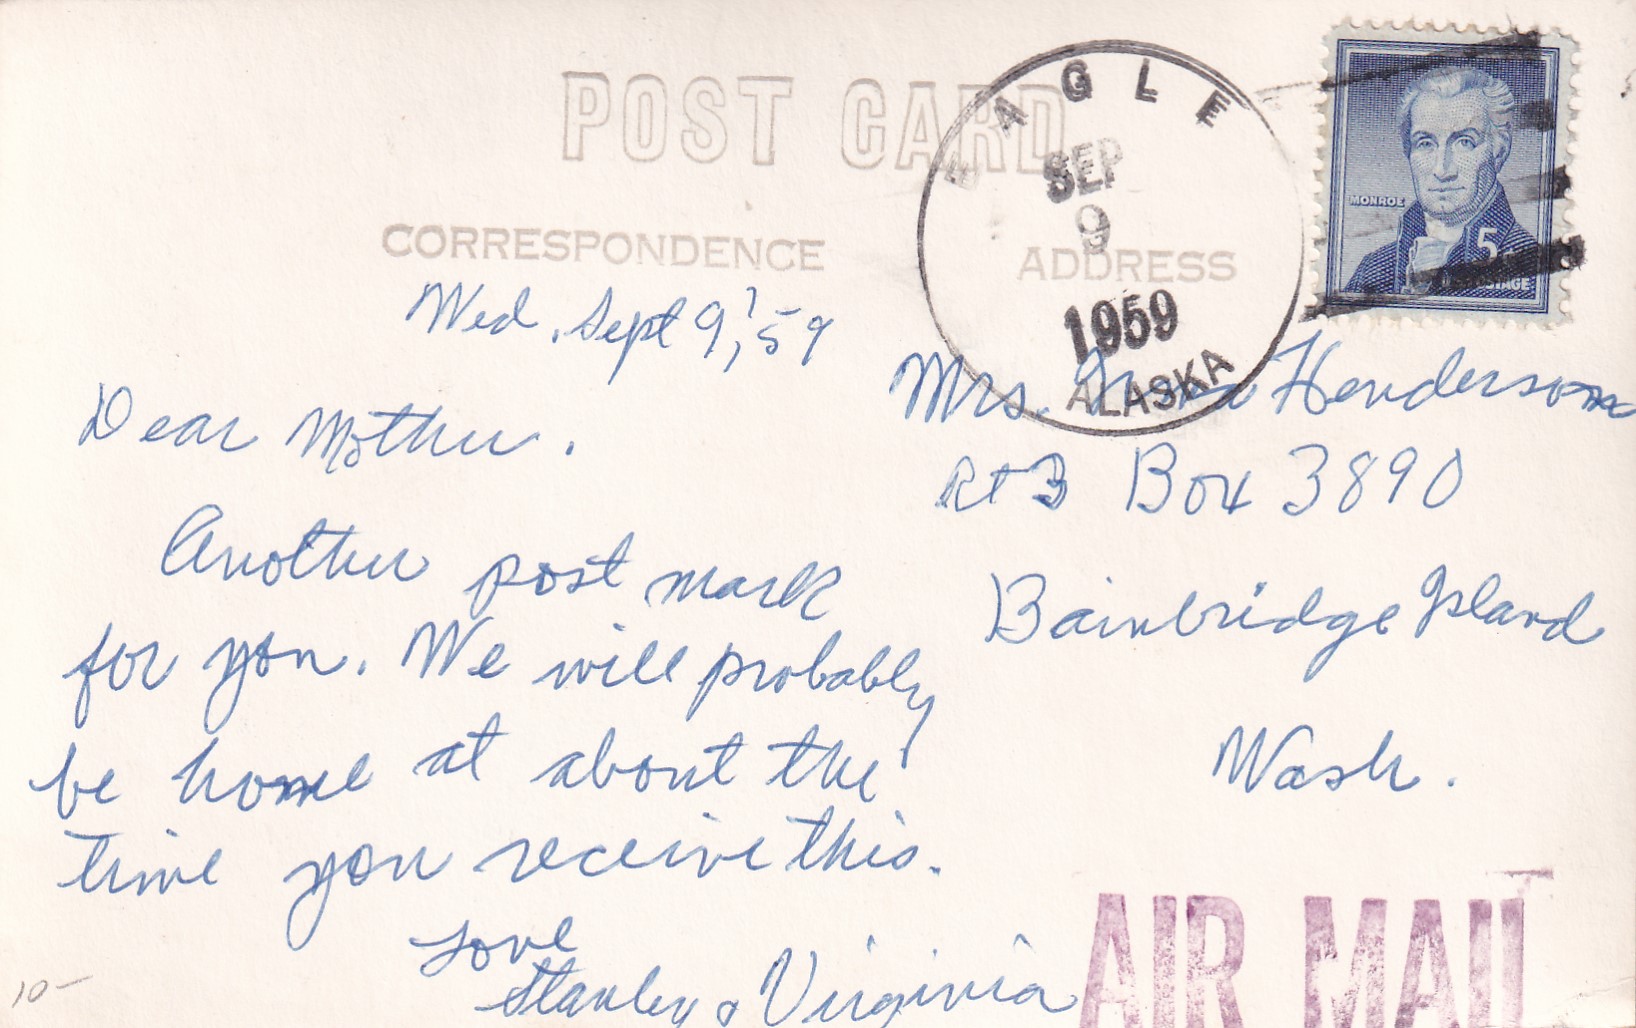 POST CARD
CORRESPONDENCE
ADDRESS
EAGLE
SEP
9
1959
ALASKA
MONROE
5¢
U.S. POSTAGE
Wed. Sept 9, '59
Dear Mother.
Another post mark
for you. We will probably
be home at about the
time you receive this.
Love
Stanley & Virginia
Mrs. Henderson
Rt 3 Box 3890
Bainbridge Island
Wash.
AIR MAIL
10-